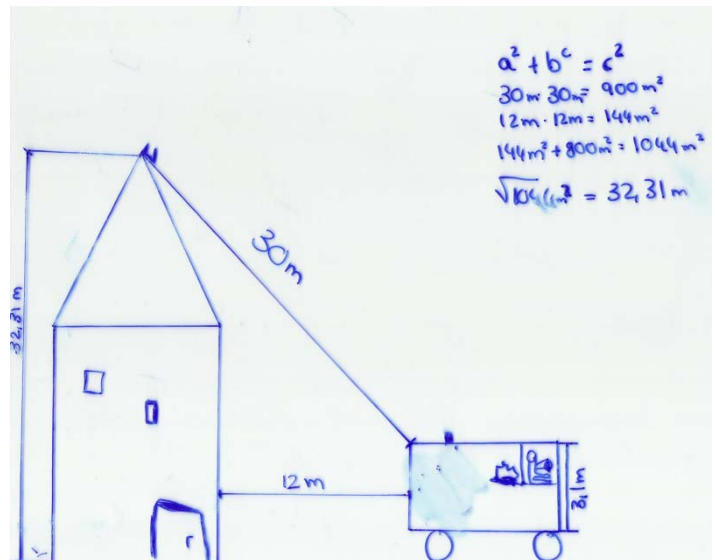 a² + bᶜ = c²
30m·30m = 900m²
12m·12m = 144m²
144m² + 800m² = 1044m²
√1044m² = 32,31m
30m
32,31m
12m